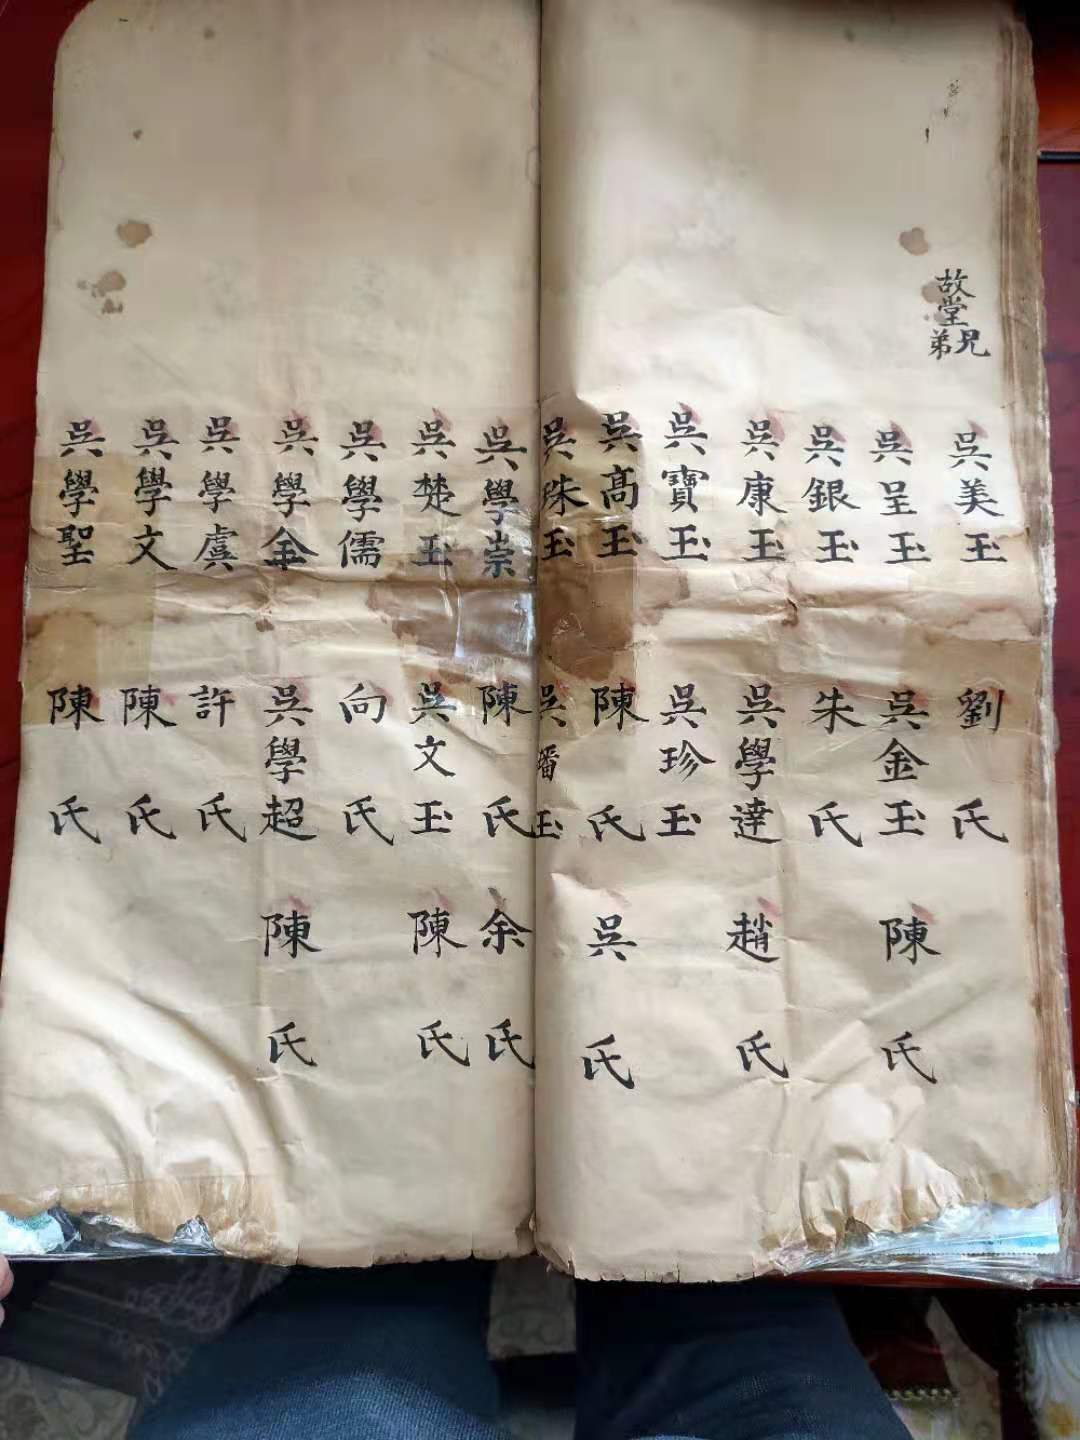 故堂兄弟
吳美玉 劉氏
吳呈玉 吳金玉 陳氏
吳銀玉 朱氏
吳康玉 吳學達 趙氏
吳寶玉 吳珍玉
吳高玉 陳氏 吳氏
吳珠玉 吳璠玉
吳學崇 陳氏 余氏
吳楚玉 吳文玉 陳氏
吳學儒 向氏
吳學金 吳學超 陳氏
吳學虞 許氏
吳學文 陳氏
吳學聖 陳氏